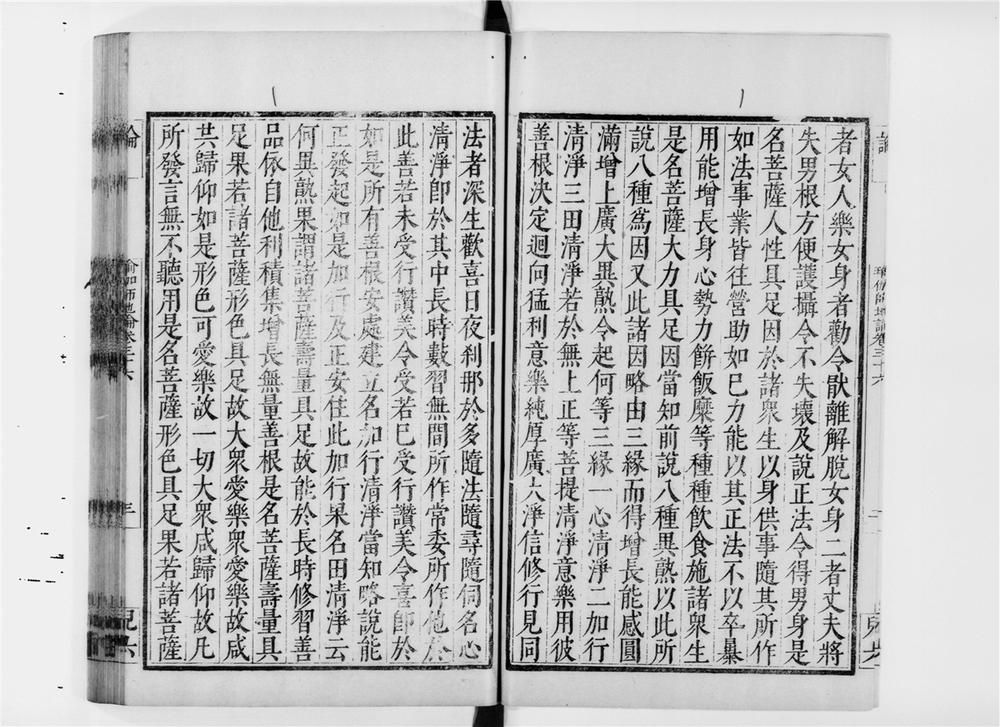 者女人樂女身者勸令猒離解脫女身二者丈夫將
失男根方便護攝令不失壞及說正法令得男身是
名菩薩人性具足因於諸眾生以身供事隨其所作
如法事業皆往營助如己力能以其正法不以卒暴
用能增長身心勢力餅飯糜等種種飲食施諸眾生
是名菩薩大力具足因當知前說八種異熟以此所
說八種為因又此諸因略由三緣而得增長能感圓
滿增上廣大異熟令起何等三緣一心清淨二加行
清淨三田清淨若於無上正等菩提清淨意樂用彼
善根決定迴向猛利意樂純厚廣大淨信修行見同
法者深生歡喜日夜剎那於多隨法隨尋隨伺名心
清淨即於其中長時數習無間所作常委所作他於
此善若未受行讚美令受若已受行讚美令喜即於
如是所有善根安處建立名加行清淨當知略說能
正發起如是加行及正安住此加行果名田清淨云
何異熟果謂諸菩薩壽量具足故能於長時修習善
品依自他利積集增長無量善根是名菩薩壽量具
足果若諸菩薩形色具足故大眾愛樂眾愛樂故咸
共歸仰如是形色可愛樂故一切大眾咸歸仰故凡
所發言無不聽用是名菩薩形色具足果若諸菩薩